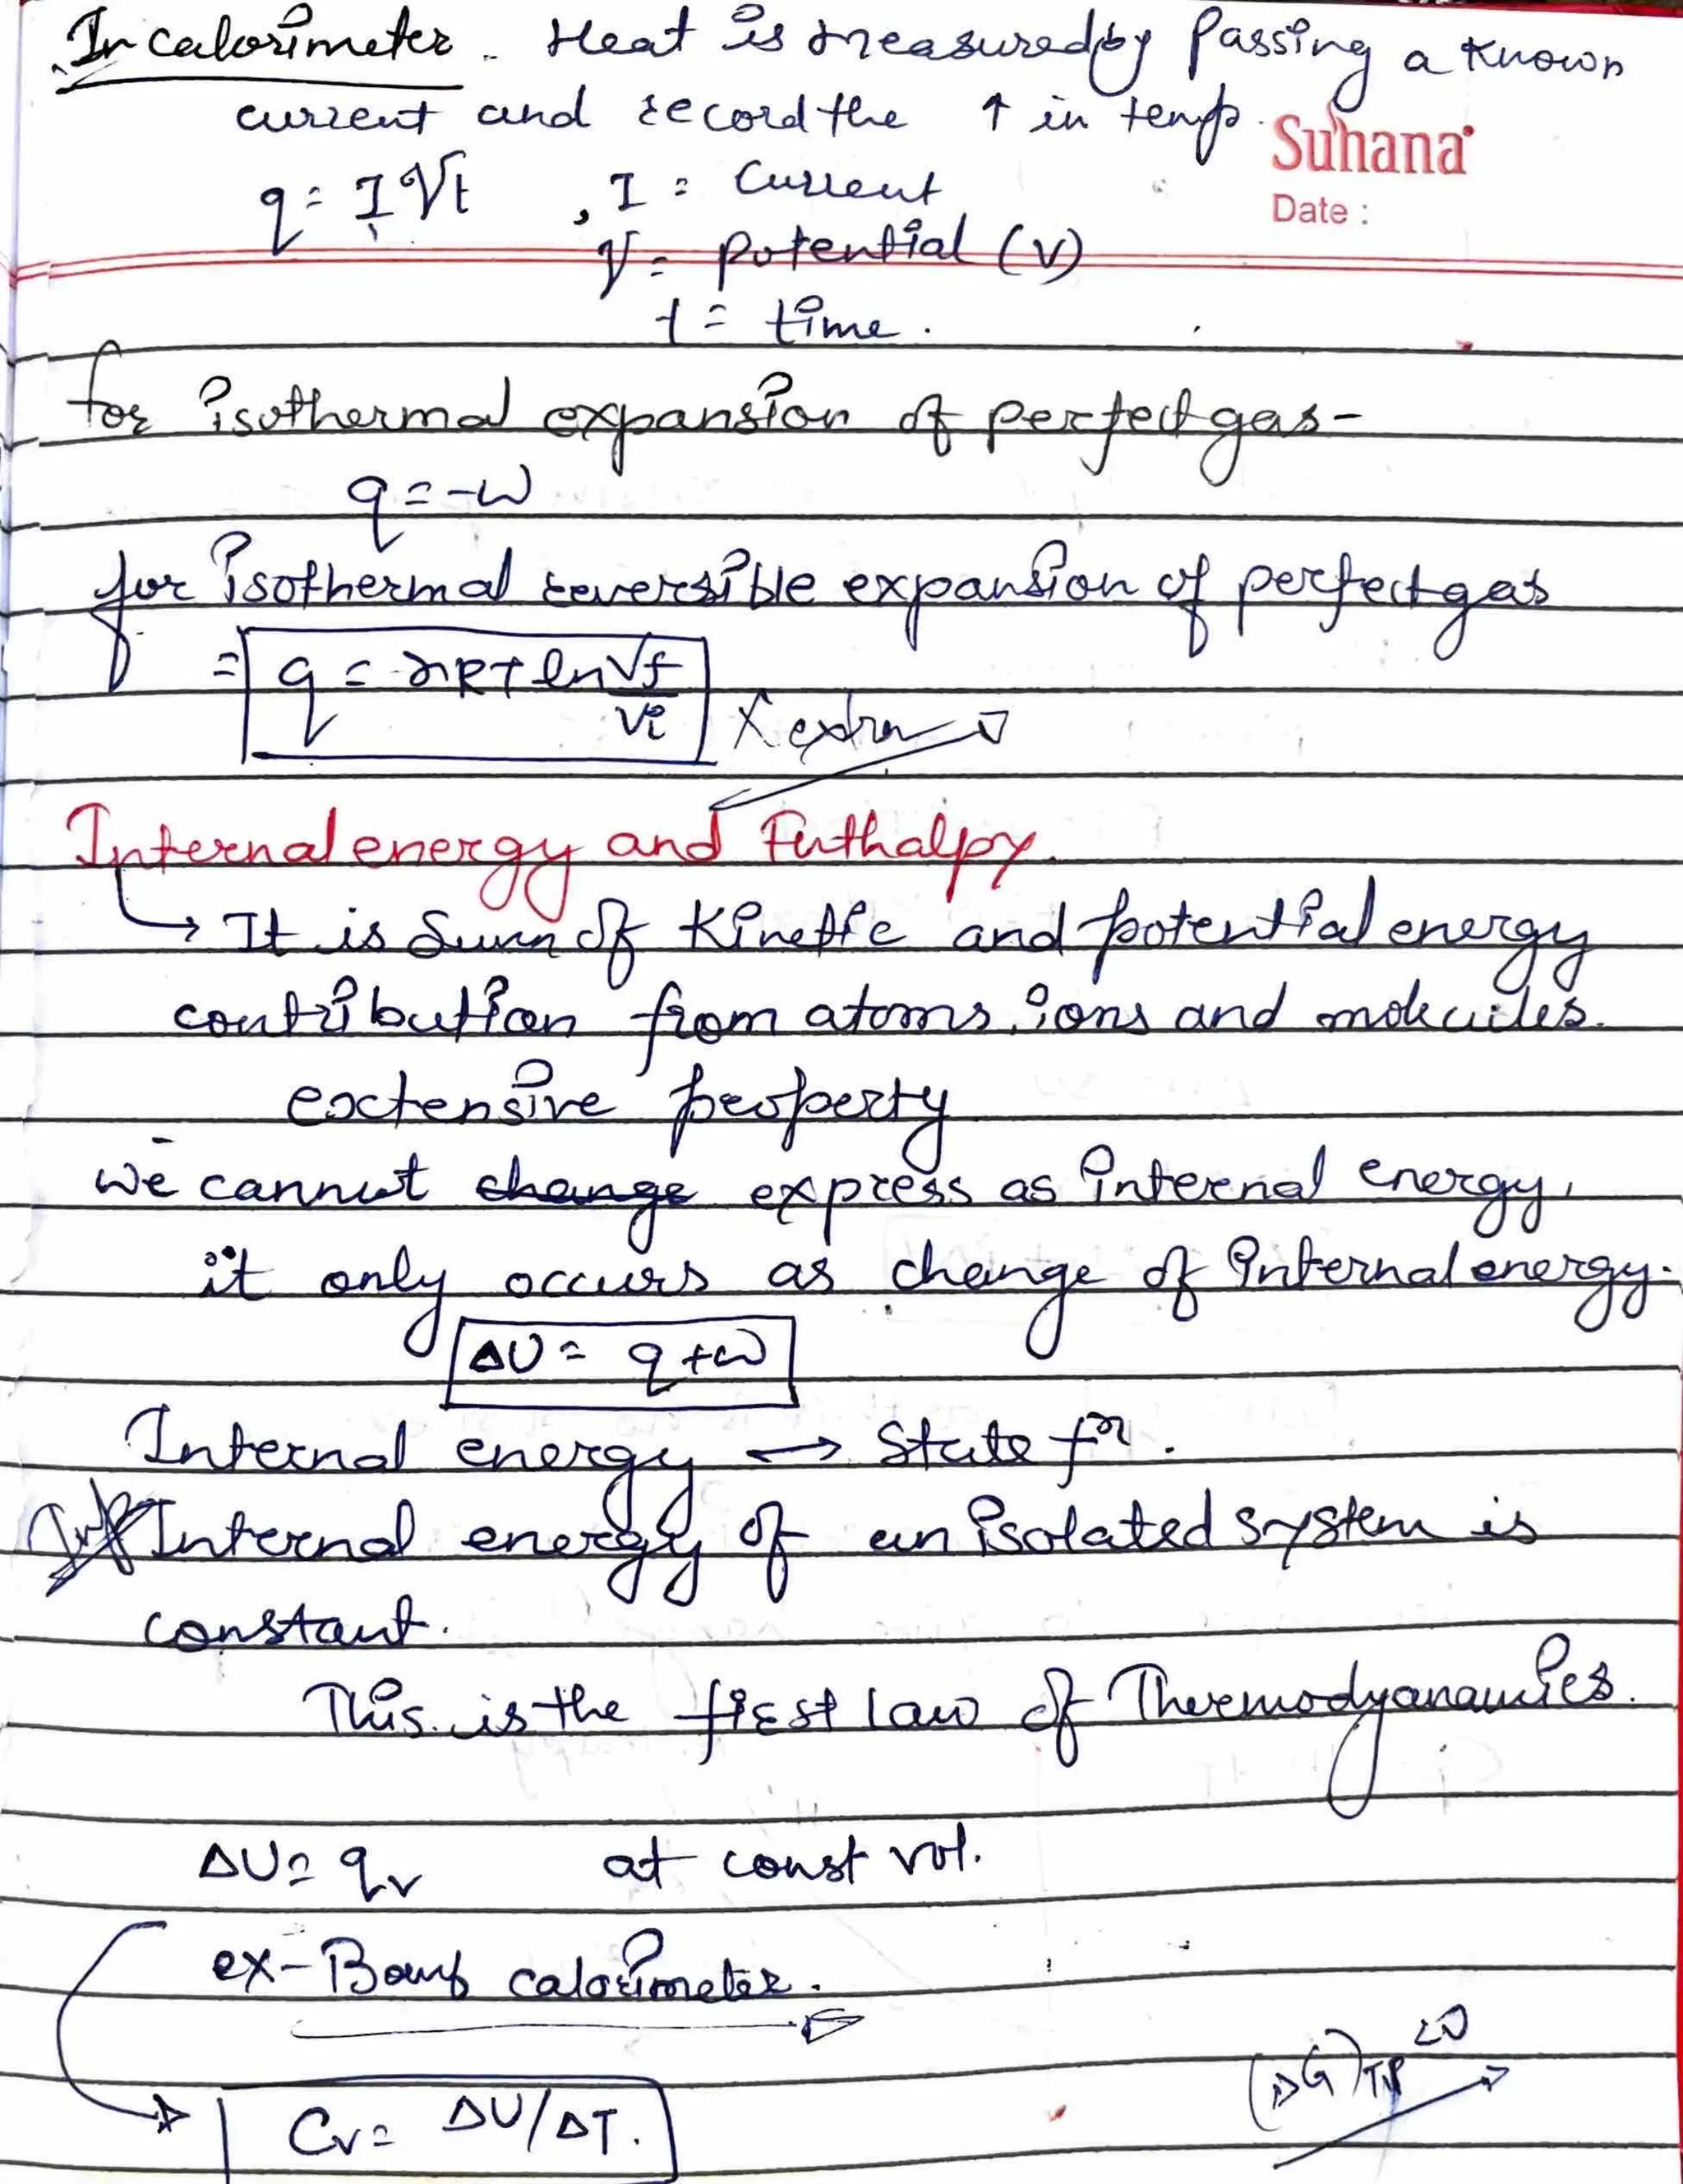 In calorimeter - Heat is measured by Passing a known
current and record the ↑ in temp.
Suhana
Date :
q = IVt , I = Current
V = potential (V)
t = time.
for isothermal expansion of perfect gas-
q = -w
for isothermal reversible expansion of perfect gas
= q = nRT ln Vf/Vi
extra
Internal energy and Enthalpy.
→ It is Sum of Kinetic and potential energy
contribution from atoms, ions and molecules.
extensive property
we cannot change express as internal energy,
it only occurs as change of internal energy.
ΔU = q + w
Internal energy → State fn.
Internal energy of an isolated system is
constant.
This is the first law of Thermodyanamics.
ΔU = qv at const vol.
ex- Bomb calorimeter.
(ΔG)TP <0
Cv = ΔU/ΔT.